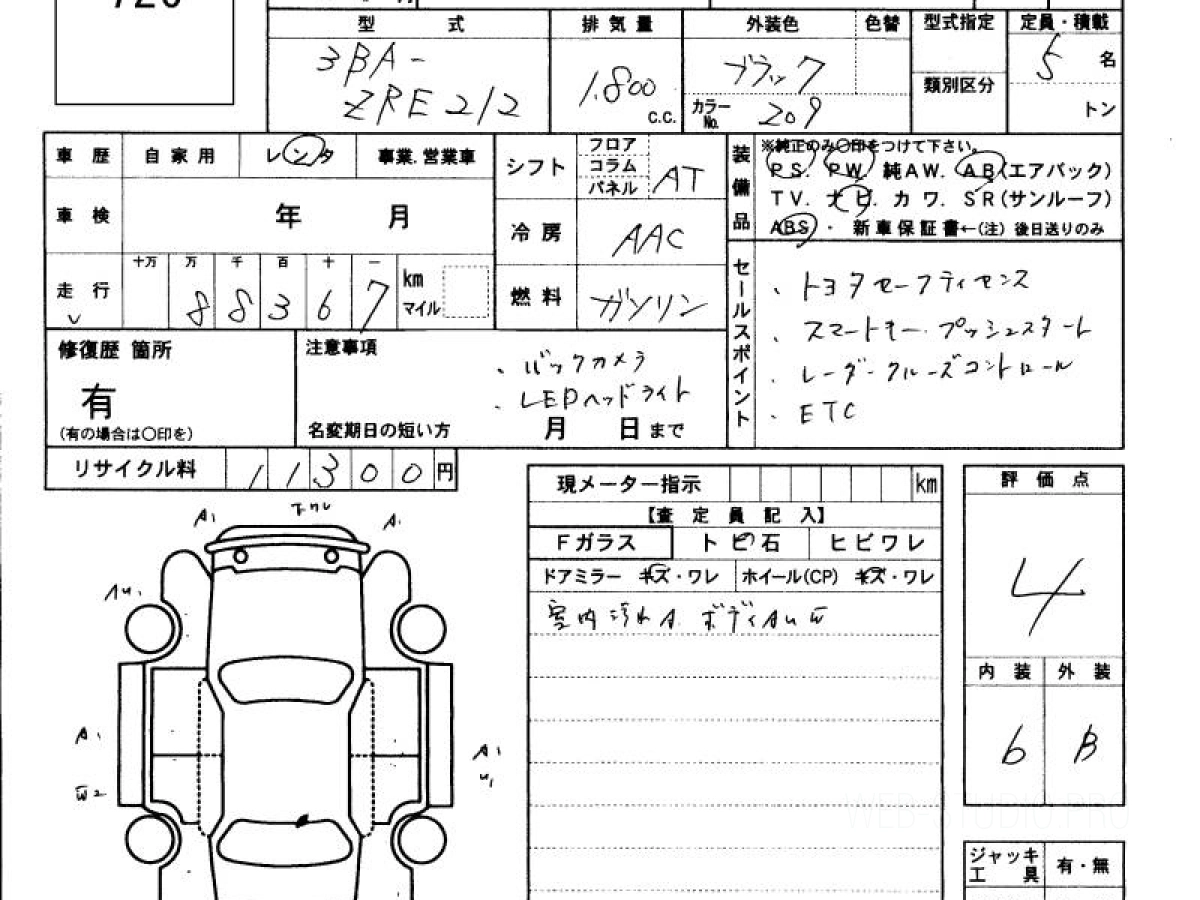 型 式
排 気 量
外装色
色替
型式指定
定員・積載
3BA-
ZRE212
1.800
C.C.
ブラック
カラーNo. 209
類別区分
5 名
トン
車 歴
自 家 用
レンタ
事業.営業車
シフト
フロア
コラム
パネル
AT
装備品
※純正のみ〇印をつけて下さい。
PS. PW. 純AW. AB(エアバック)
TV. ナビ. カ ワ. SR(サンルーフ)
ABS ・ 新車保証書←(注) 後日送りのみ
車 検
年 月
冷 房
AAC
走 行
十万 万 千 百 十 一
8 8 3 6 7
km
マイル
燃 料
ガソリン
セールスポイント
・トヨタセーフティセンス
・スマートキー・プッシュスタート
・レーダークルーズコントロール
・ETC
修復歴 箇所
有
(有の場合は〇印を)
注意事項
・バックカメラ
・LEDヘッドライト
名変期日の短い方 月 日 まで
リサイクル料
11300円
現メーター指示
km
【査 定 員 記 入】
Fガラス
トビ石
ヒビワレ
ドアミラー キズ・ワレ
ホイール(CP) キズ・ワレ
室内汚れA. ボディAUW
評 価 点
4
内 装
外 装
6
B
A1
A1
AU1
A1
W2
A1
U1
ジャッキ
工 具
有・無
WEB-STUDIO.PRO